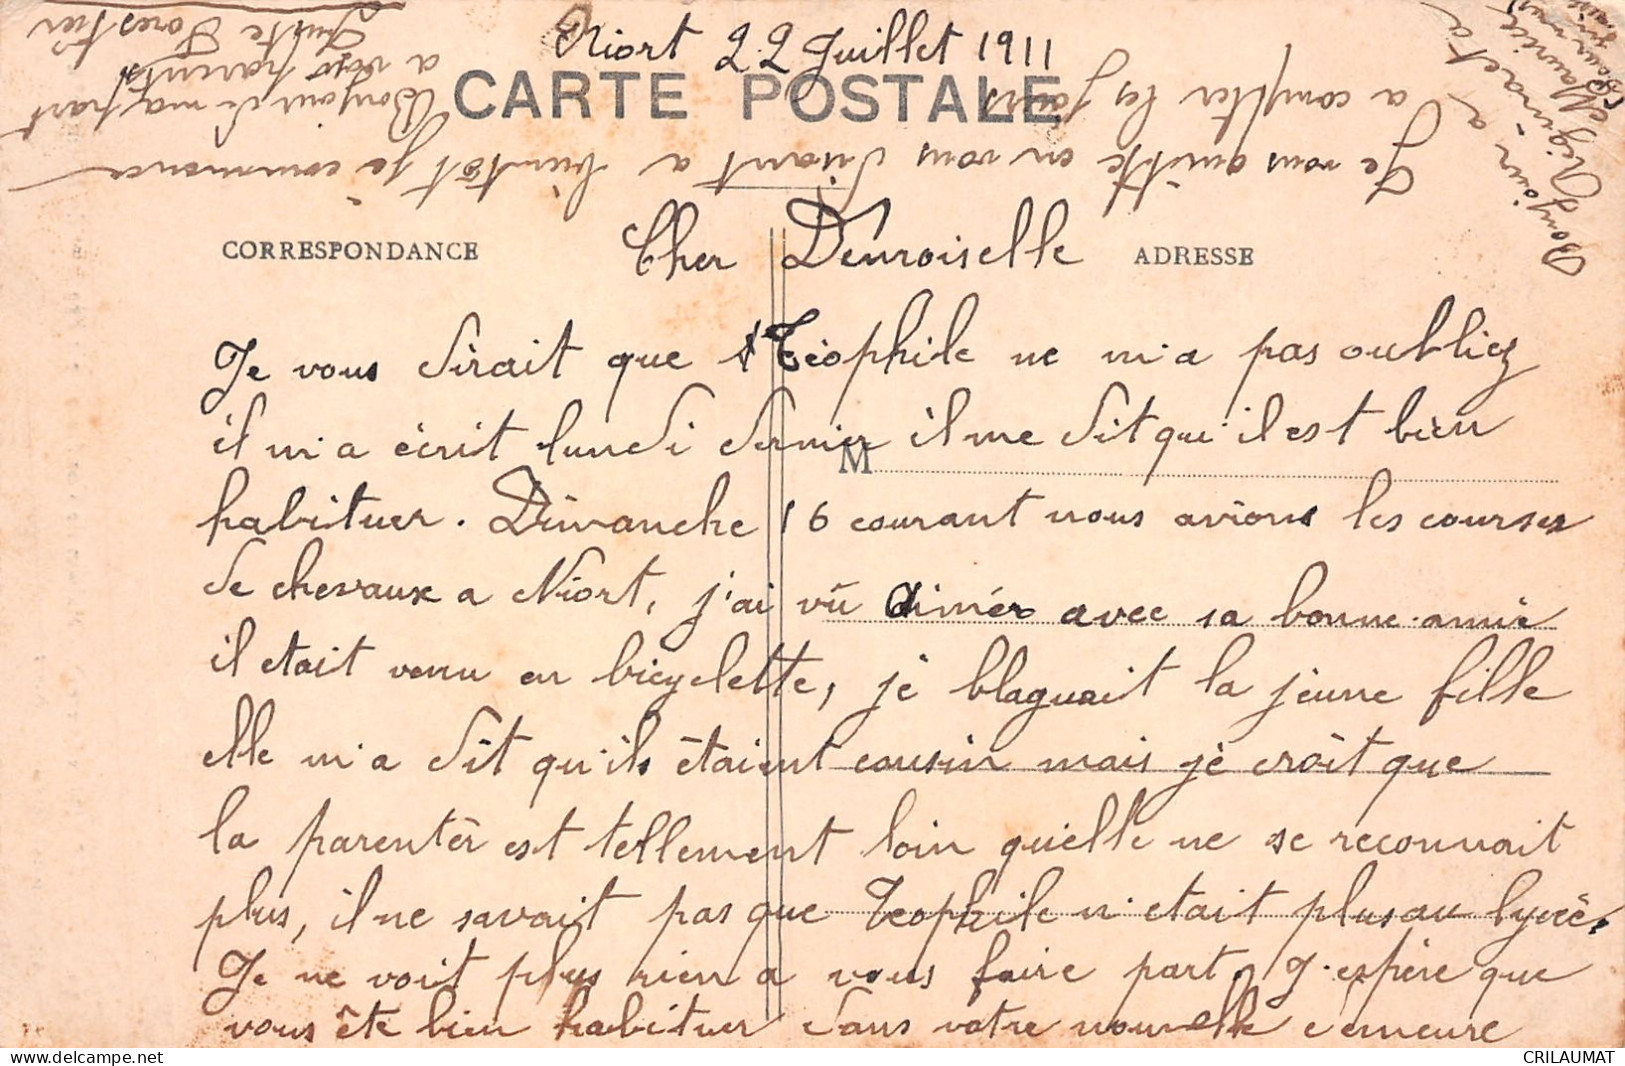 Niort 22 Juillet 1911
CARTE POSTALE
CORRESPONDANCE
ADRESSE
M
Cher Demoiselle
Je vous dirait que Téophile ne m'a pas oubliez
il m'a écrit lundi dernier il me dit qu'il est bien
habituer. Dimanche 16 courant nous avions les courses
de chevaux a Niort, j'ai vû Aimér avec sa bonne amie
il etait venu en bicyclette, je blaguait la jeune fille
elle m'a dit qu'ils êtaient cousin mais je croit que
la parentér est tellement loin qu'elle ne se reconnait
plus, il ne savait pas que Teophile n'etait plus au lycée.
Je ne voit plus rien a vous faire part, J'espère que
vous ête bien habituer dans votre nouvelle demeure
Je vous quitte en vous disant a bientot je commence
a compter les jours
Bonjour de ma part
a vos parents
Juste Forestier
Bonjour a
Réginact a
Maurice